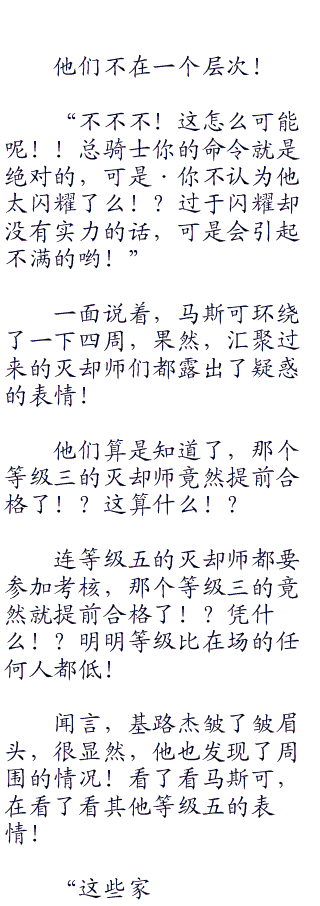 他们不在一个层次！
“不不不！这怎么可能
呢！！总骑士你的命令就是
绝对的，可是·你不认为他
太闪耀了么！？过于闪耀却
没有实力的话，可是会引起
不满的哟！”
一面说着，马斯可环绕
了一下四周，果然，汇聚过
来的灭却师们都露出了疑惑
的表情！
他们算是知道了，那个
等级三的灭却师竟然提前合
格了！？这算什么！？
连等级五的灭却师都要
参加考核，那个等级三的竟
然就提前合格了！？凭什
么！？明明等级比在场的任
何人都低！
闻言，基路杰皱了皱眉
头，很显然，他也发现了周
围的情况！看了看马斯可，
在看了看其他等级五的表
情！
“这些家